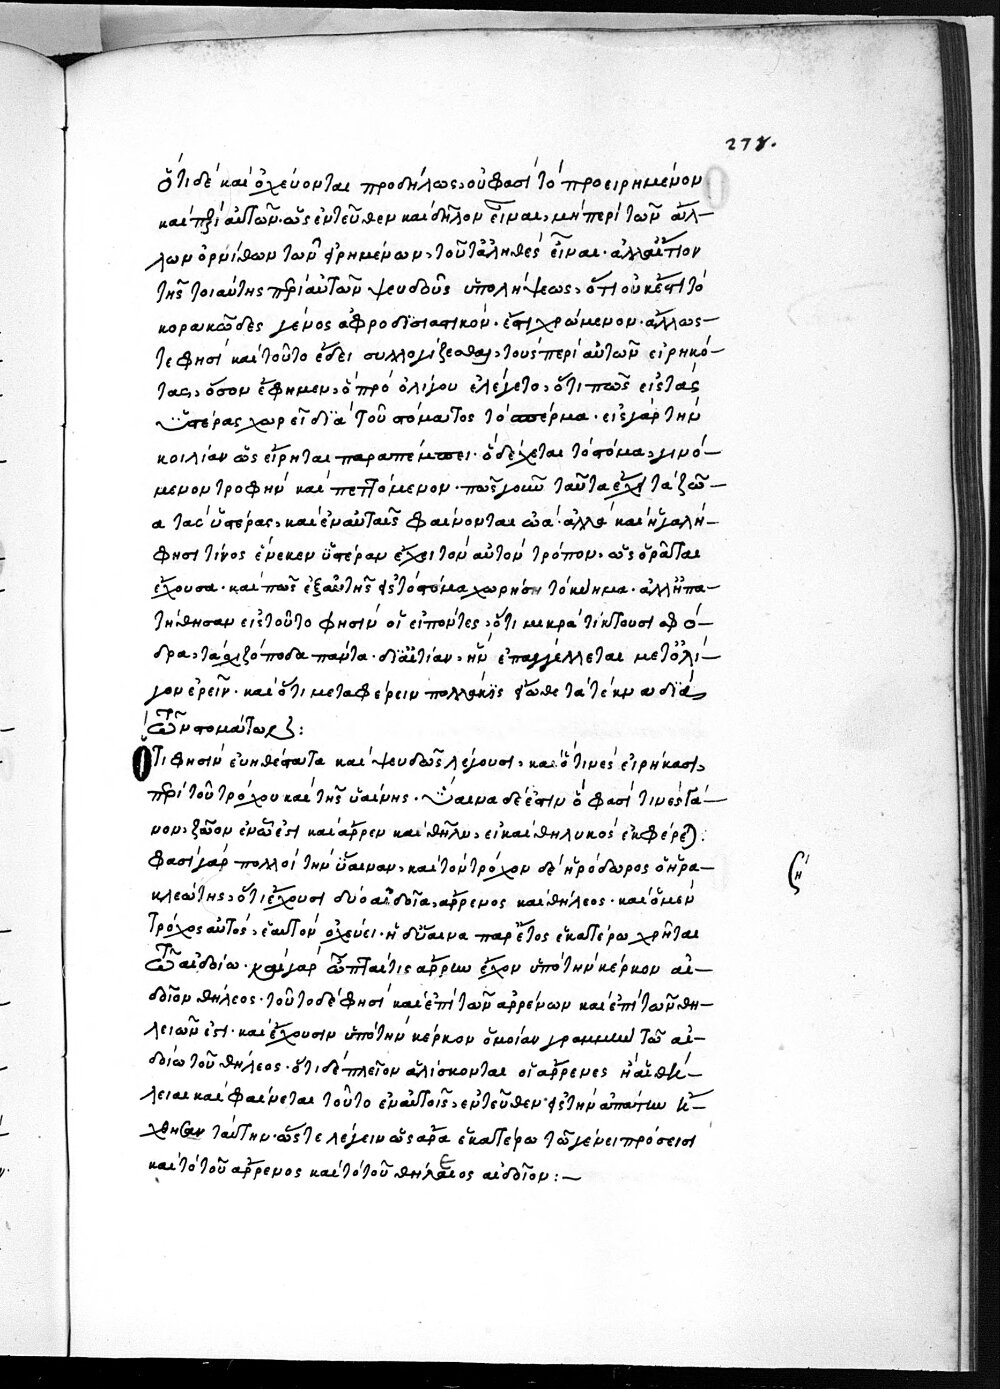 278.
ὅτι δὲ καὶ ὀχεύονται προδήλως, οὔ φασὶ τὸ προειρημένον
καὶ περὶ αὐτῶν. ὡς ἐντεῦθεν καὶ δῆλον εἶναι, μὴ περὶ τῶν ἄλ-
λων ὀρνίθων τῶν εἰρημένων, τοῦτ' ἀληθὲς εἶναι. ἀλλ' αἴτιον
τῆς τοιαύτης περὶ αὐτῶν ψευδοῦς ὑπολήψεως, ὅτι οὐκ ἔστι τὸ
κορακῶδες γένος ἀφροδισιαστικὸν. ἔστι χρώμενον. ἄλλως
τε φησὶ καὶ τοῦτο ἔδει συλλογίζεσθαι τοὺς περὶ αὐτῶν εἰρηκό-
τας, ὅσον ἔφημεν, ὃ πρὸ ὀλίγου ἐλέγετο, ὅτι πῶς εἰς τὰς
ὑστέρας χωρεῖ διὰ τοῦ στόματος τὸ σπέρμα. εἰ γὰρ τὴν
κοιλίαν ὡς εἴρηται παραπέμπει. ὃ δέχεται τὸ στόμα, γινό-
μενον τροφὴν καὶ πεπτόμενον. πῶς γοῦν ταῦτα ἔχει τὰ ζῶ-
α τὰς ὑστέρας, καὶ ἐν αὐταῖς φαίνονται ὠά. ἀλλὰ καὶ ἡ γαλῆ
φησι τίνος ἕνεκεν ὑστέραν ἔχει τὸν αὐτὸν τρόπον, ὡς ὁρᾶται
ἔχουσα. καὶ πῶς ἐξ αὐτῆς εἰς τὸ στόμα χωρήσῃ τὸ κύημα. ἀλλ' ἠπα-
τήθησαν εἰς τοῦτο φησὶν οἱ εἰπόντες, ὅτι μικρὰ τίκτουσι σφό-
δρα, τὰ σχιζόποδα πάντα. δι' αἰτίαν, ἣν ἐπαγγέλλεται μετ' ὀλί-
γον ἐρεῖν. καὶ ὅτι μεταφέρειν πολλάκις εἴωθε τὰ τέκνα διὰ
τῶν στομάτων:
Ὅτι φησὶν εὐηθέστατα καὶ ψευδῶς λέγουσι, καὶ ὅ τινες εἰρήκασι,
περὶ τοῦ τρόχου καὶ τῆς ὑαίνης. ὕαινα δέ ἐστιν ὅ φασὶ τινὲς γά-
νον, ζῶον ἐν ᾧ ἐστι καὶ ἄρρεν καὶ θῆλυ, εἰ καὶ θηλυκῶς ἐκφέρεται:
φασὶ γὰρ πολλοὶ τὴν ὕαιναν, καὶ τὸν τρόχον δὲ ἡρόδωρος ὁ ἡρα-
κλεώτης, ὅτι ἔχουσι δύο αἰδοῖα, ἄρρενος καὶ θήλεος. καὶ ὁ μὲν
τρόχος αὐτὸς, ἑαυτὸν ὀχεύει. ἡ δ' ὕαινα παρ' ἔτος ἑκατέρω χρῆται
τῶ αἰδοίω. καὶ γὰρ ὦπται τις ἄρρην ἔχων ὑπὸ τὴν κέρκον αἰ-
δοῖον θήλεος. τοῦτο δὲ φησὶ καὶ ἐπὶ τῶν ἀρρένων καὶ ἐπὶ τῶν θη-
λειῶν ἐστι. καὶ ἔχουσιν ὑπὸ τὴν κέρκον ὁμοίαν γραμμὴν τῶ αἰ-
δοίω τοῦ θήλεος. ὅτι δὲ πλεῖον ἁλίσκονται οἱ ἄρρενες ἢ αἱ θή-
λειαι καὶ φαίνεται τοῦτο ἐν αὐτοῖς, ἐντεῦθεν εἰς τὴν ἀπάτην ἤ-
χθησαν ταύτην. ὥς τε λέγειν ὡς ἄρα ἑκατέρω τῶ γένει πρόσεισι
καὶ τὸ τοῦ ἄρρενος καὶ τὸ τοῦ θήλεος αἰδοῖον:—